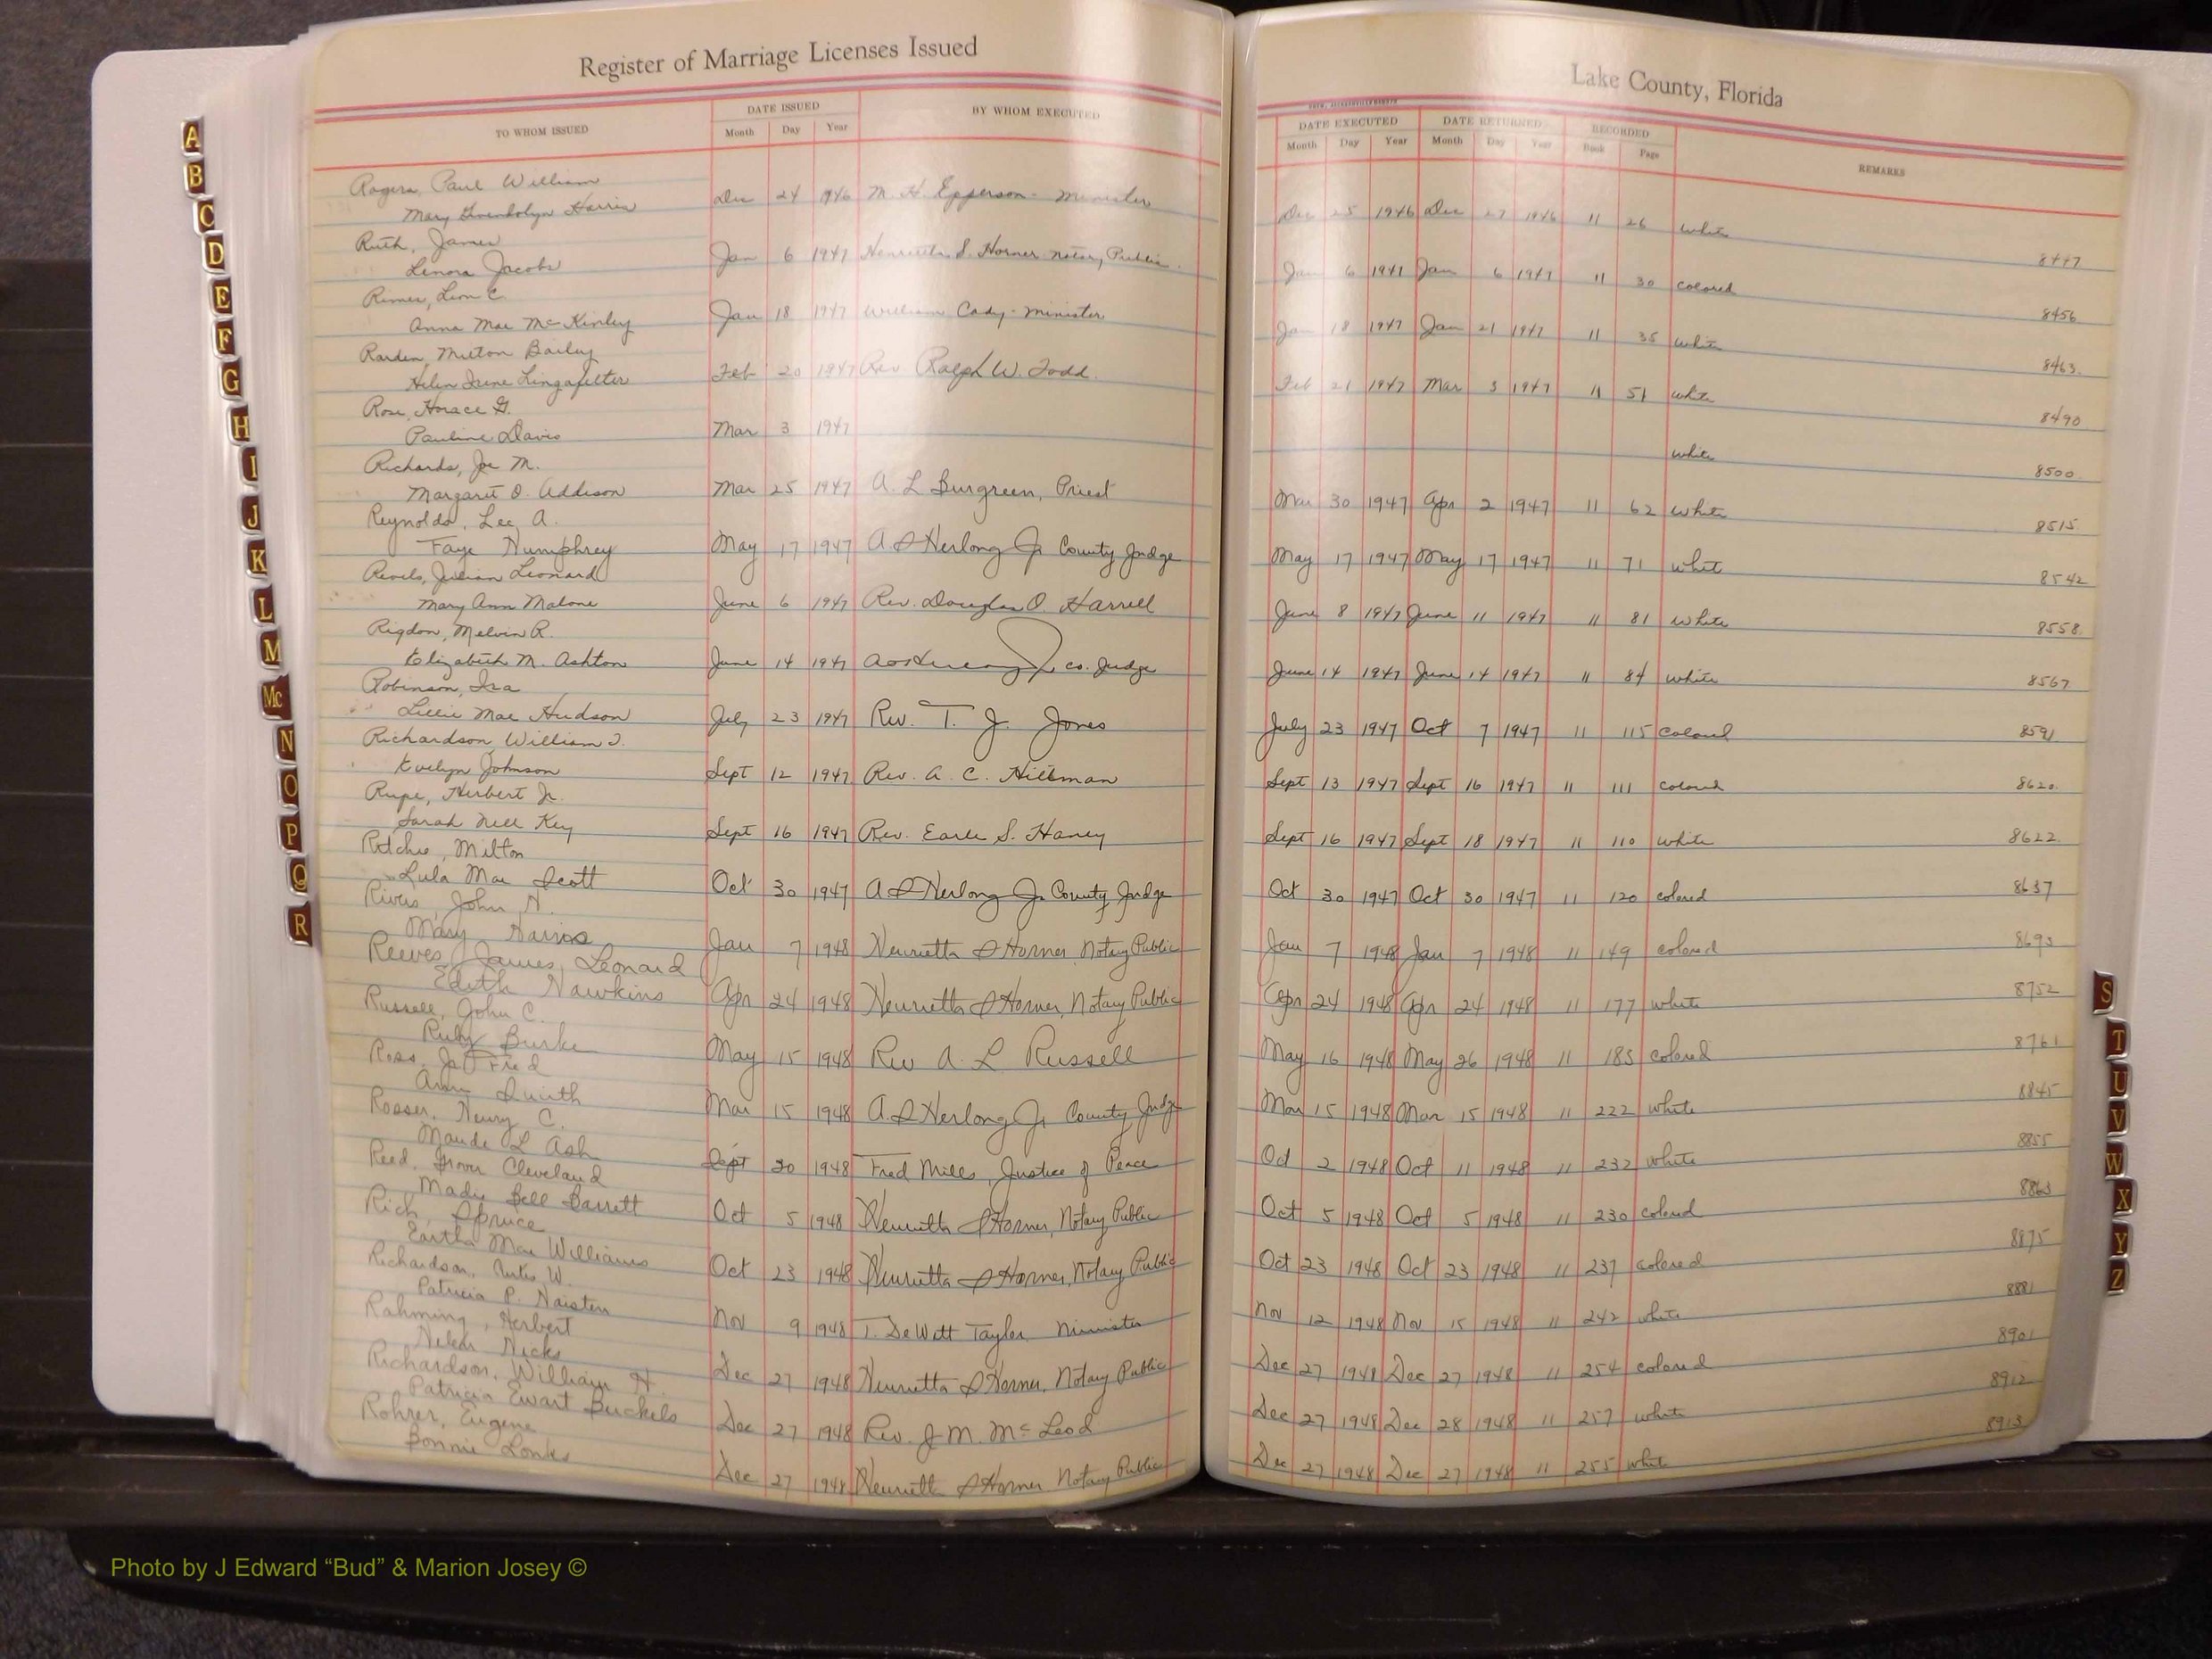 Register of Marriage Licenses Issued
Lake County, Florida
TO WHOM ISSUED
DATE ISSUED
Month Day Year
BY WHOM EXECUTED
DATE EXECUTED DATE RETURNED RECORDED
Month Day Year Month Day Year Book Page
REMARKS
Rogers, Paul William
Mary Gwendolyn Harris Dec 24 1946 M. H. Epperson - minister Dec 25 1946 Dec 27 1946 11 26 white 8447
Ruth, James
Lenora Jacobs Jan 6 1947 Henrietta S. Horner notary Public. Jan 6 1947 Jan 6 1947 11 30 colored 8456
Rimes, Leon C.
Anna Mae McKinley Jan 18 1947 William Cady - minister Jan 18 1947 Jan 21 1947 11 35 white 8463.
Rarden, Milton Bailey
Helen Irene Lingafelter Feb 20 1947 Rev Ralph W. Todd. Feb 21 1947 Mar 3 1947 11 51 white 8490
Rose, Horace G.
Pauline Davis Mar 3 1947 white 8500
Richards, Joe M.
Margaret O. Addison Mar 25 1947 A. L Burgreen, Priest Mar 30 1947 Apr 2 1947 11 62 white 8515
Reynolds, Lee A.
Faye Humphrey May 17 1947 A. S Herlong Jr County Judge May 17 1947 May 17 1947 11 71 white 8542
Revels, Julian Leonard
Mary Ann Malone June 6 1947 Rev. Douglas O. Harrell June 8 1947 June 11 1947 11 81 white 8558.
Rigdon, Melvin R.
Elizabeth M. Ashton June 14 1947 co. Judge June 14 1947 June 14 1947 11 84 white 8567
Robinson, Ira
Lillie Mae Hudson July 23 1947 Rev. T. J. Jones July 23 1947 Oct 7 1947 11 115 colored 8591
Richardson, William J.
Evelyn Johnson Sept 12 1947 Rev. A. C. Hillman Sept 13 1947 Sept 16 1947 11 111 colored 8620.
Rupe, Herbert Jr.
Sarah Nell Key Sept 16 1947 Rev. Earle S. Haney Sept 16 1947 Sept 18 1947 11 110 white 8622.
Ritchie, Milton
Lula Mae Scott Oct 30 1947 A S Herlong Jr County Judge Oct 30 1947 Oct 30 1947 11 120 colored 8637
Rivers, John H.
Mary Jan 7 1948 Henrietta S Horner, Notary Public Jan 7 1948 Jan 7 1948 11 149 colored 8693
Reeves, James Leonard
Edith Hawkins Apr 24 1948 Henrietta S Horner, Notary Public Apr 24 1948 Apr 24 1948 11 177 white 8752
Russell, John C.
Ruby Burke May 15 1948 Rev A. L Russell May 16 1948 May 26 1948 11 183 colored 8761
Ross, Fred
Ann Smith Mar 15 1948 A. S Herlong Jr County Judge Mar 15 1948 Mar 15 1948 11 222 white 8845
Rosser, Henry C.
Maude L Ash Sept 30 1948 Fred Mills, Justice of Peace Oct 2 1948 Oct 11 1948 11 232 white 8855
Reed, Grover Cleveland
Bell Barrett Oct 5 1948 Henrietta S Horner, Notary Public Oct 5 1948 Oct 5 1948 11 230 colored 8863
Rich, Spruce
Eartha Mae Williams Oct 23 1948 Henrietta S Horner, Notary Public Oct 23 1948 Oct 23 1948 11 237 colored 8875
Richardson, W.
Patricia P. Naisten Nov 9 1948 T. DeWitt Tayler Minister Nov 12 1948 Nov 15 1948 11 242 white 8881
Rahming, Herbert
Nicks Dec 27 1948 Henrietta S Horner, Notary Public Dec 27 1948 Dec 27 1948 11 254 colored 8901
Richardson, William H.
Patricia Ewart Buckels Dec 27 1948 Rev. J. M. McLeod Dec 27 1948 Dec 28 1948 11 257 white 8912
Rohrer, Eugene
Bonnie Lonks Dec 27 1948 Henrietta S Horner Notary Public Dec 27 1948 Dec 27 1948 11 255 white 8913
A
B
C
D
E
F
G
H
I
J
K
L
M
Mc
N
O
P
Q
R
S
T
U
V
W
X
Y
Z
Photo by J Edward “Bud” & Marion Josey ©